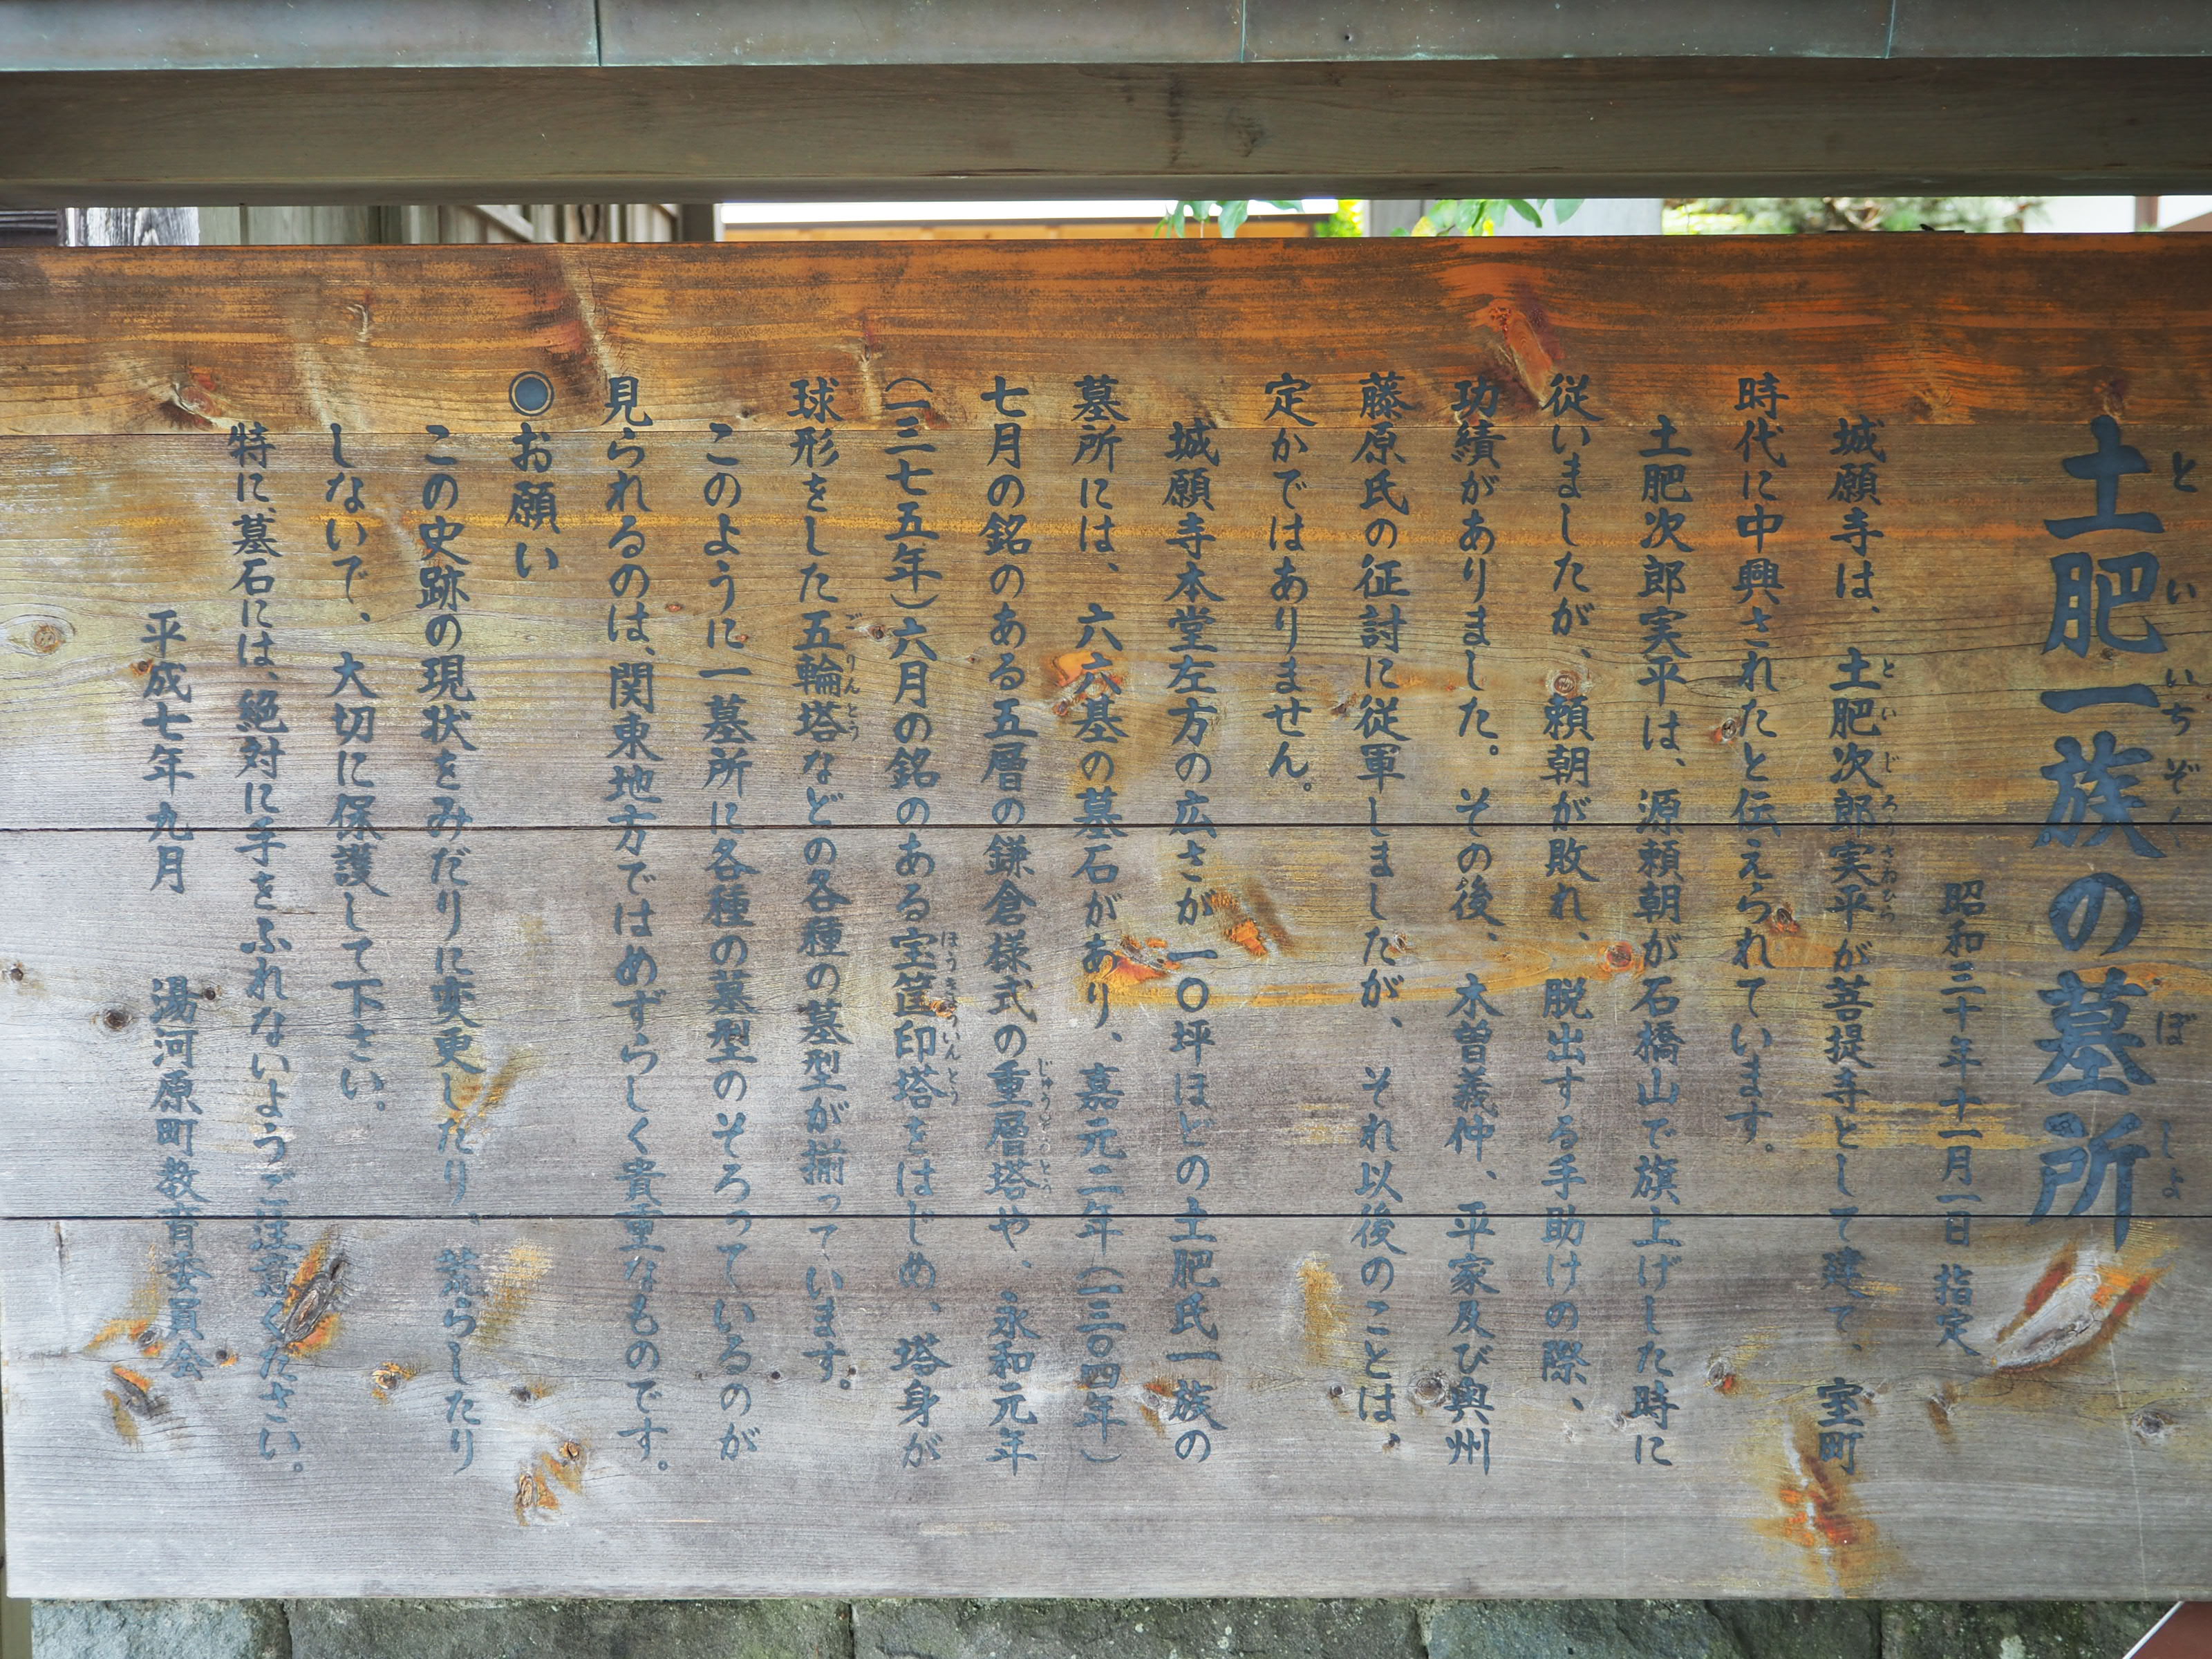 土肥一族の墓所
昭和三十年十一月一日 指定
城願寺は、土肥次郎実平が菩提寺として建て、室町
時代に中興されたと伝えられています。
土肥次郎実平は、源頼朝が石橋山で旗上げした時に
従いましたが、頼朝が敗れ、脱出する手助けの際、
功績がありました。その後、木曽義仲、平家及び奥州
藤原氏の征討に従軍しましたが、それ以後のことは、
定かではありません。
城願寺本堂左方の広さが一〇坪ほどの土肥氏一族の
墓所には、六六基の墓石があり、嘉元二年(一三〇四年)
七月の銘のある五層の鎌倉様式の重層塔や、永和元年
(一三七五年)六月の銘のある宝筐印塔をはじめ、塔身が
球形をした五輪塔などの各種の墓型が揃っています。
このように一墓所に各種の墓型のそろっているのが
見られるのは、関東地方ではめずらしく貴重なものです。
◉お願い
この史跡の現状をみだりに変更したり、荒らしたり
しないで、大切に保護して下さい。
特に、墓石には、絶対に手をふれないようご注意ください。
平成七年九月 湯河原町教育委員会